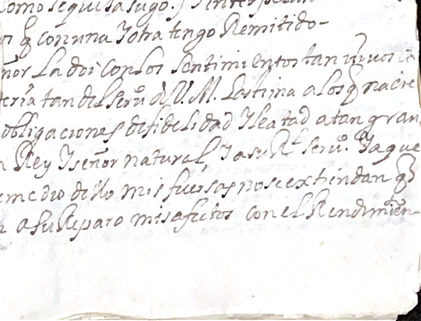 como se qui
os q con una Y otra tengo Remitido-
ñor La doi con los sentimientos tan vivos
teria tan del seruº de V.M. Lastima a los q nacie
obligaciones de fidelidad Y lealtad a tan gran
Rey Y señor natural, Y a su Rl seruº. Ya que
emedio de llo mis fuersas no se extiendan q
a su Reparo mis afectos con el Rendimien